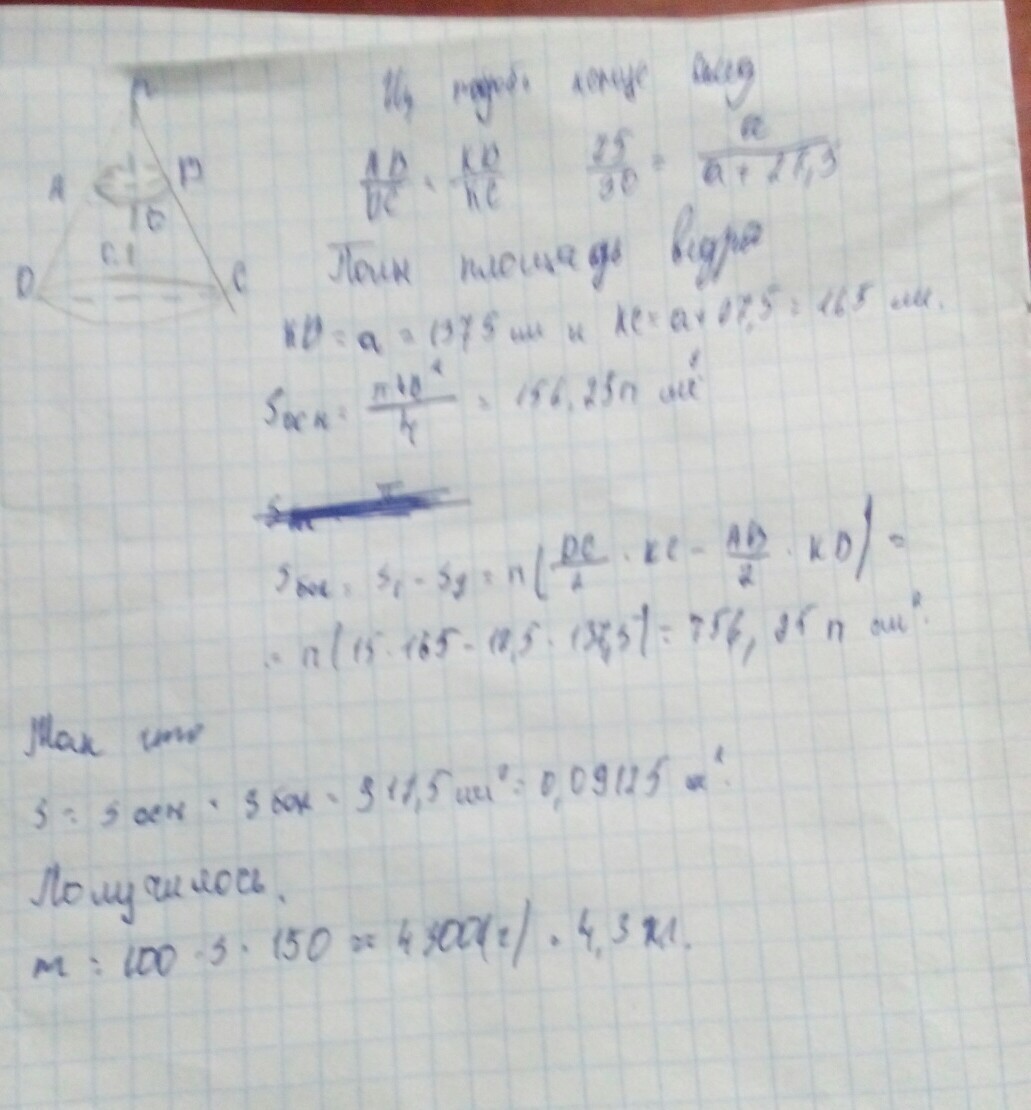 K
A
B
O
O1
D
C
Из подоб. конце след
AB/DC = KB/KC 25/30 = a/(a + 27,5)
Полн площадь ведра
KB = a = 137,5 см и KC = a + 27,5 = 165 см.
Sосн = πAB²/4 = 156,25π см²
Sбок = S1 - S2 = π(DC/2 · KC - AB/2 · KB) =
= π(15·165 - 12,5·137,5) = 756,25π см².
Так что
S = Sосн + Sбок = 912,5 см² = 0,09125 м².
Получилось.
m = 100 · S · 150 ≈ 4300(г) = 4,3 кг.